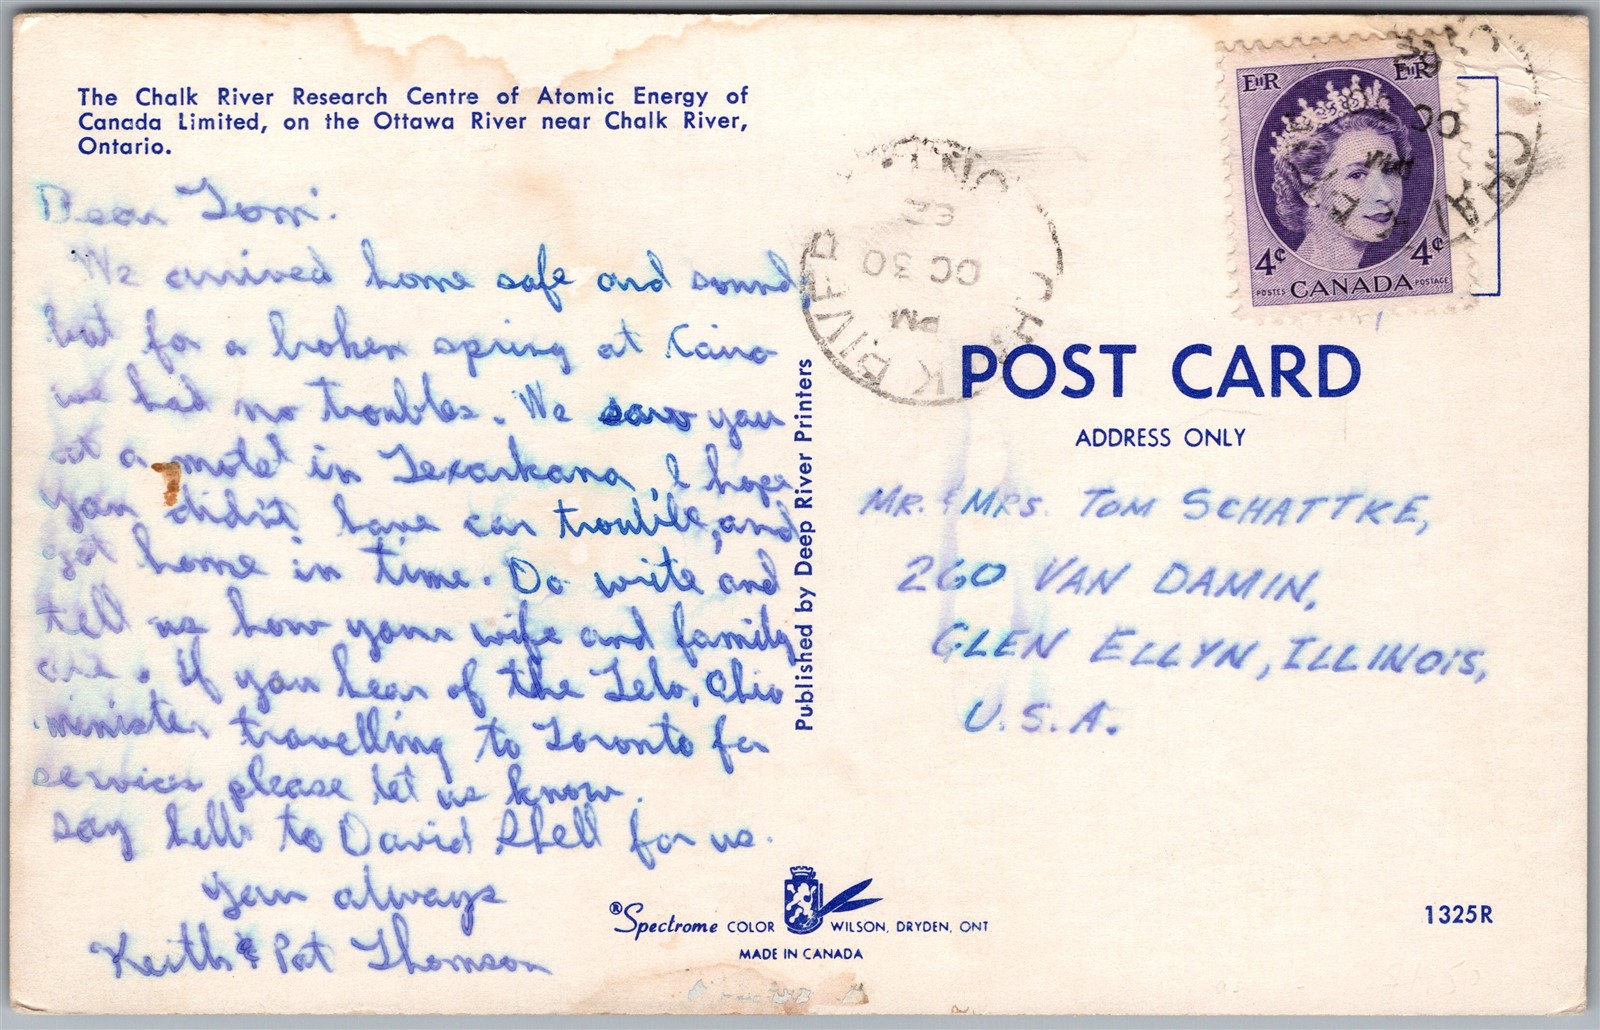 The Chalk River Research Centre of Atomic Energy of
Canada Limited, on the Ottawa River near Chalk River,
Ontario.
Dear Tom.
We arrived home safe and sound
but for a broken spring at Cairo
we had no troubles. We saw you
at a motel in Texarkana, I hope
you didn't have car trouble, and
got home in time. Do write and
tell us how your wife and family
are. If you hear of the Ohio
minister travelling to Toronto for
services please let us know.
Say hello to David Shell for us.
your always
Keith & Pat Thomson
Published by Deep River Printers
®Spectrome COLOR WILSON, DRYDEN, ONT
MADE IN CANADA
EIIR EIIR
4¢ 4¢
POSTES CANADA POSTAGE
CHALK RIVER
PM
OC 30
ONT
POST CARD
ADDRESS ONLY
MR. & MRS. TOM SCHATTKE,
260 VAN DAMIN,
GLEN ELLYN, ILLINOIS,
U.S.A.
1325R